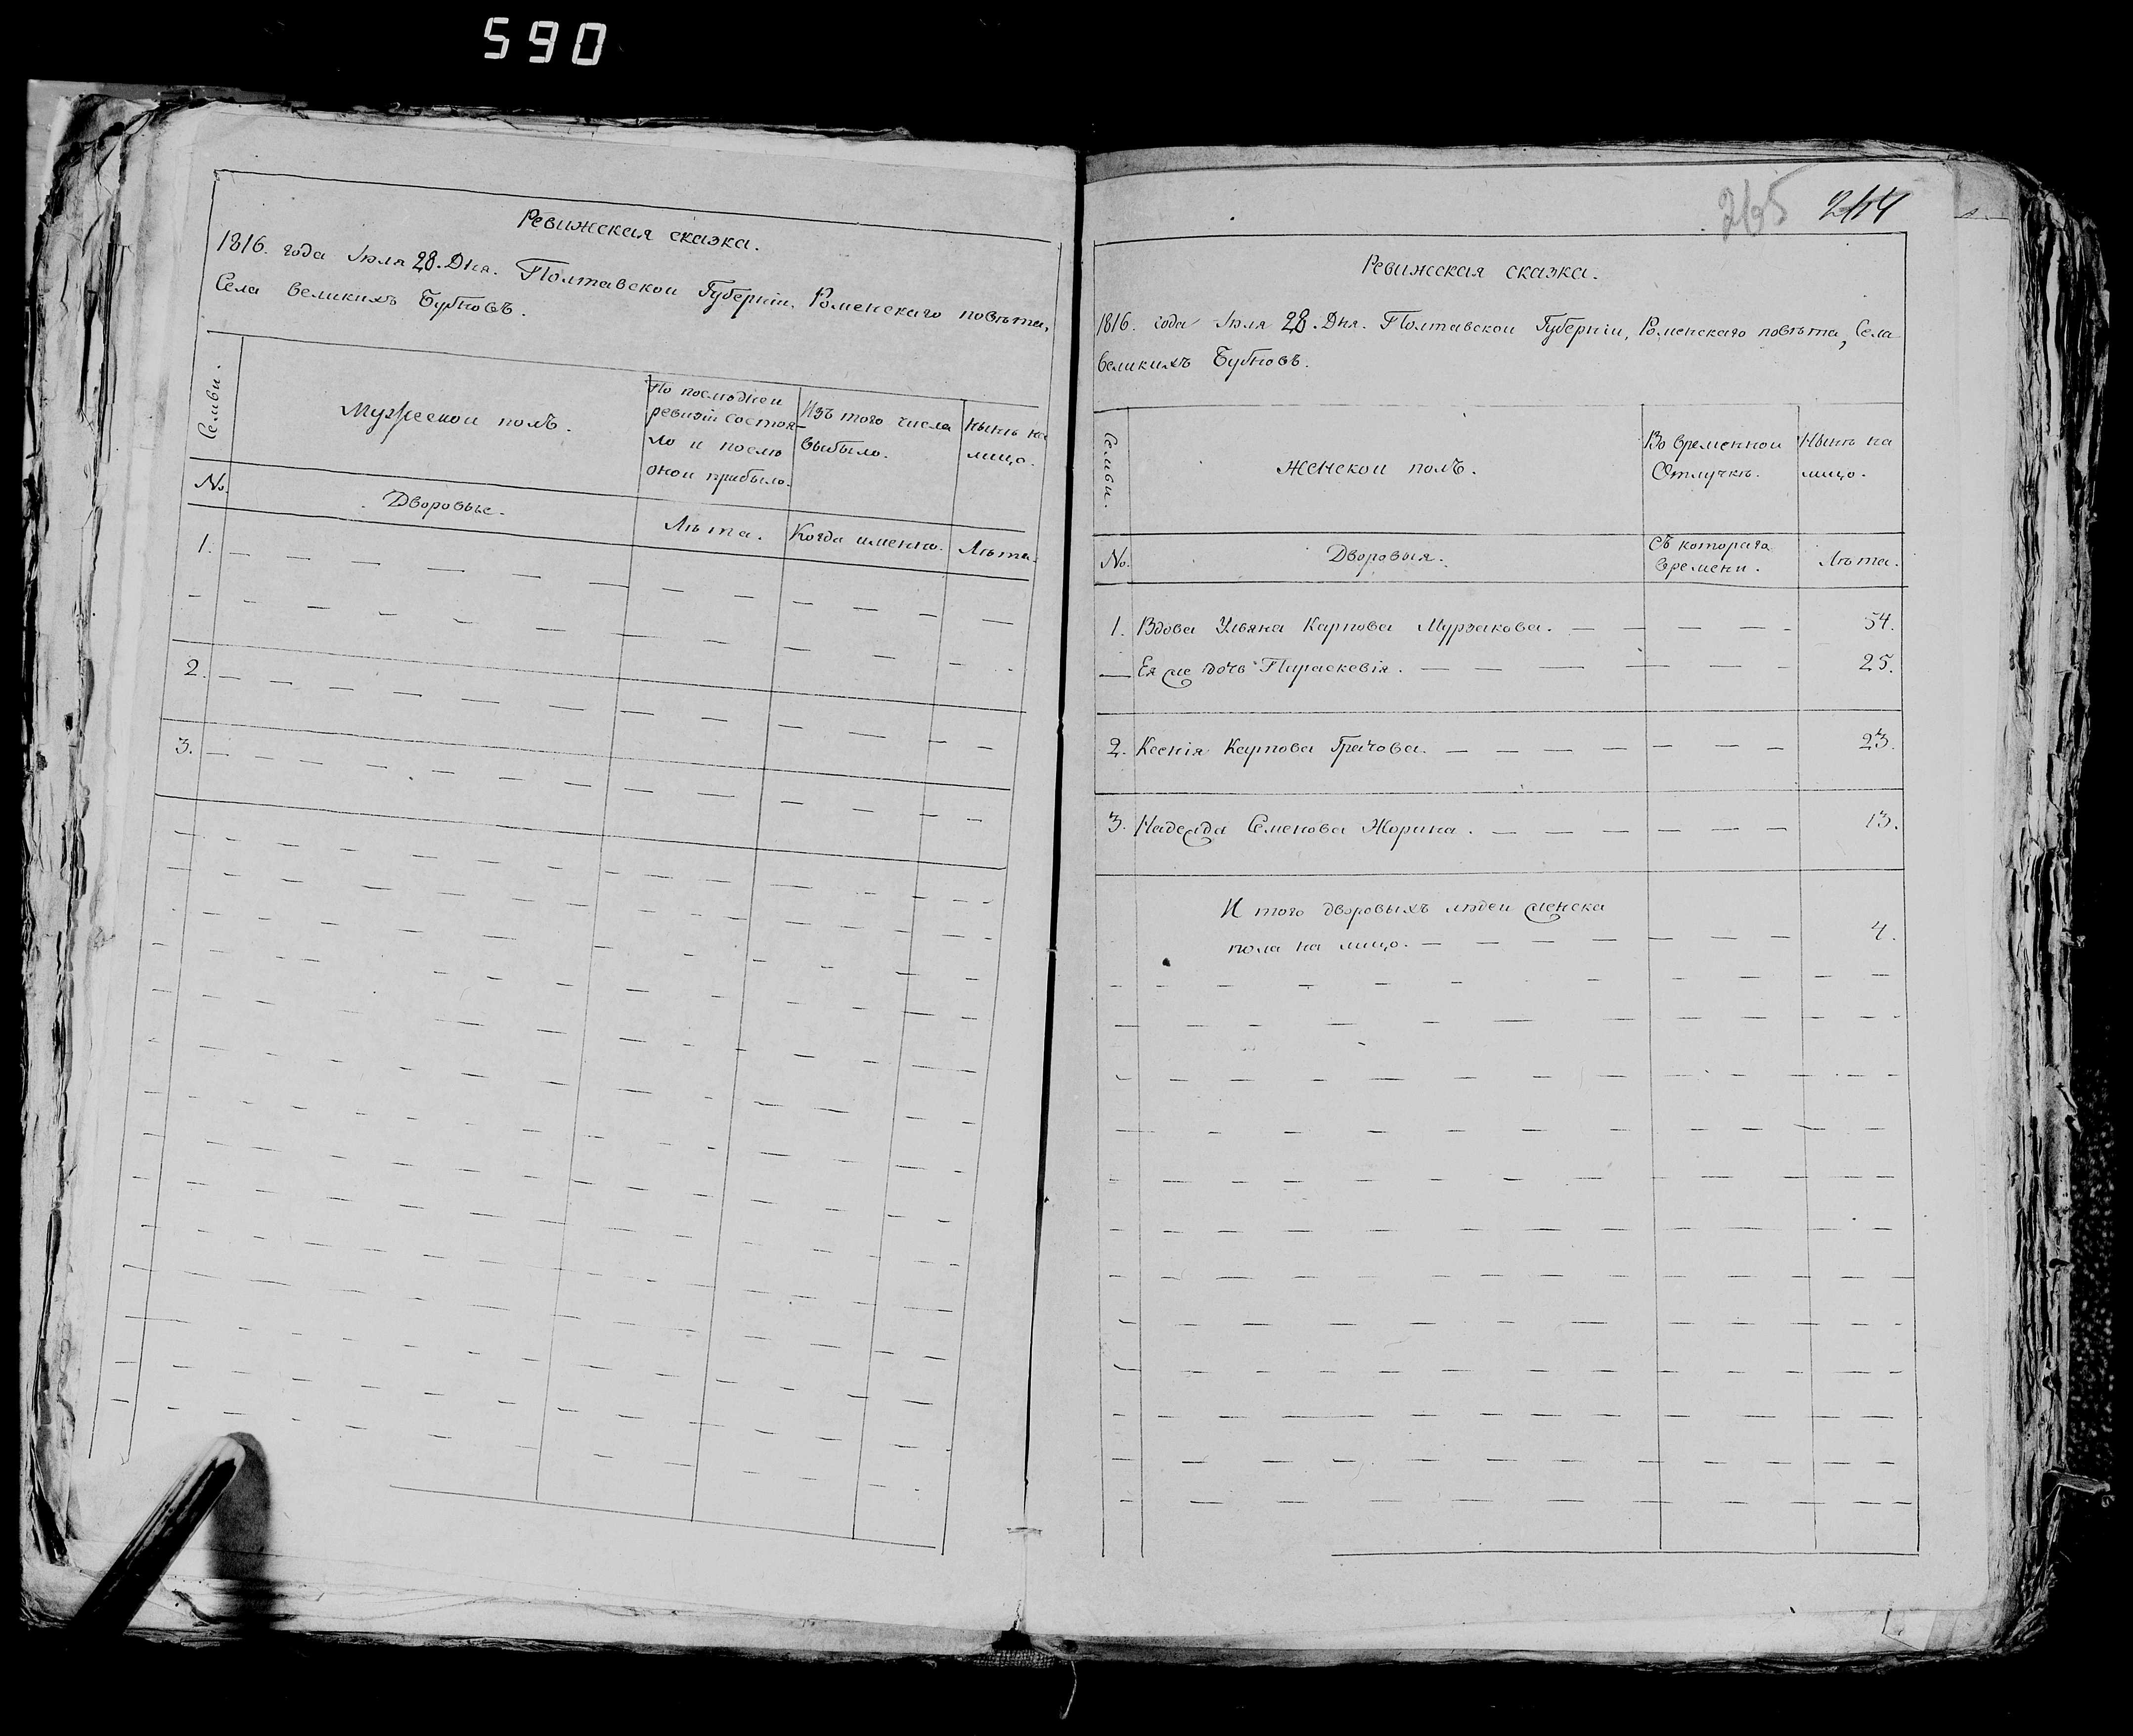 590
Ревижская сказка.
1816. года Іюля 28. Дня. Полтавской Губерніи. Роменскаго повѣта,
Села великихъ Бубновъ.
Семьи.
Мужескои полъ.
По последнеи
ревизіи состоя-
ло и после
оной прибыло.
Изъ того числа
выбыло.
Нынѣ на
лицо.
№.
Дворовые.
Лѣта.
Когда именно.
Лѣта.
1.
2.
3.
265 264
Ревижская сказка.
1816. года Іюля 28. Дня. Полтавской Губерніи, Роменскаго повѣта, Села
великихъ Бубновъ.
Семьи.
Женскои полъ.
Во временнои
Отлучкѣ.
Нынѣ на
лицо.
№.
Дворовыя.
Съ котораго
времени.
Лѣта.
1. Вдова Ульяна Карпова Мурзакова. 54.
Ея же дочь Параскевія. 25.
2. Ксенія Карпова Грачова. 23.
3. Надежда Семенова Жорина. 13.
И того дворовыхъ людеи женска
пола на лицо. 4.